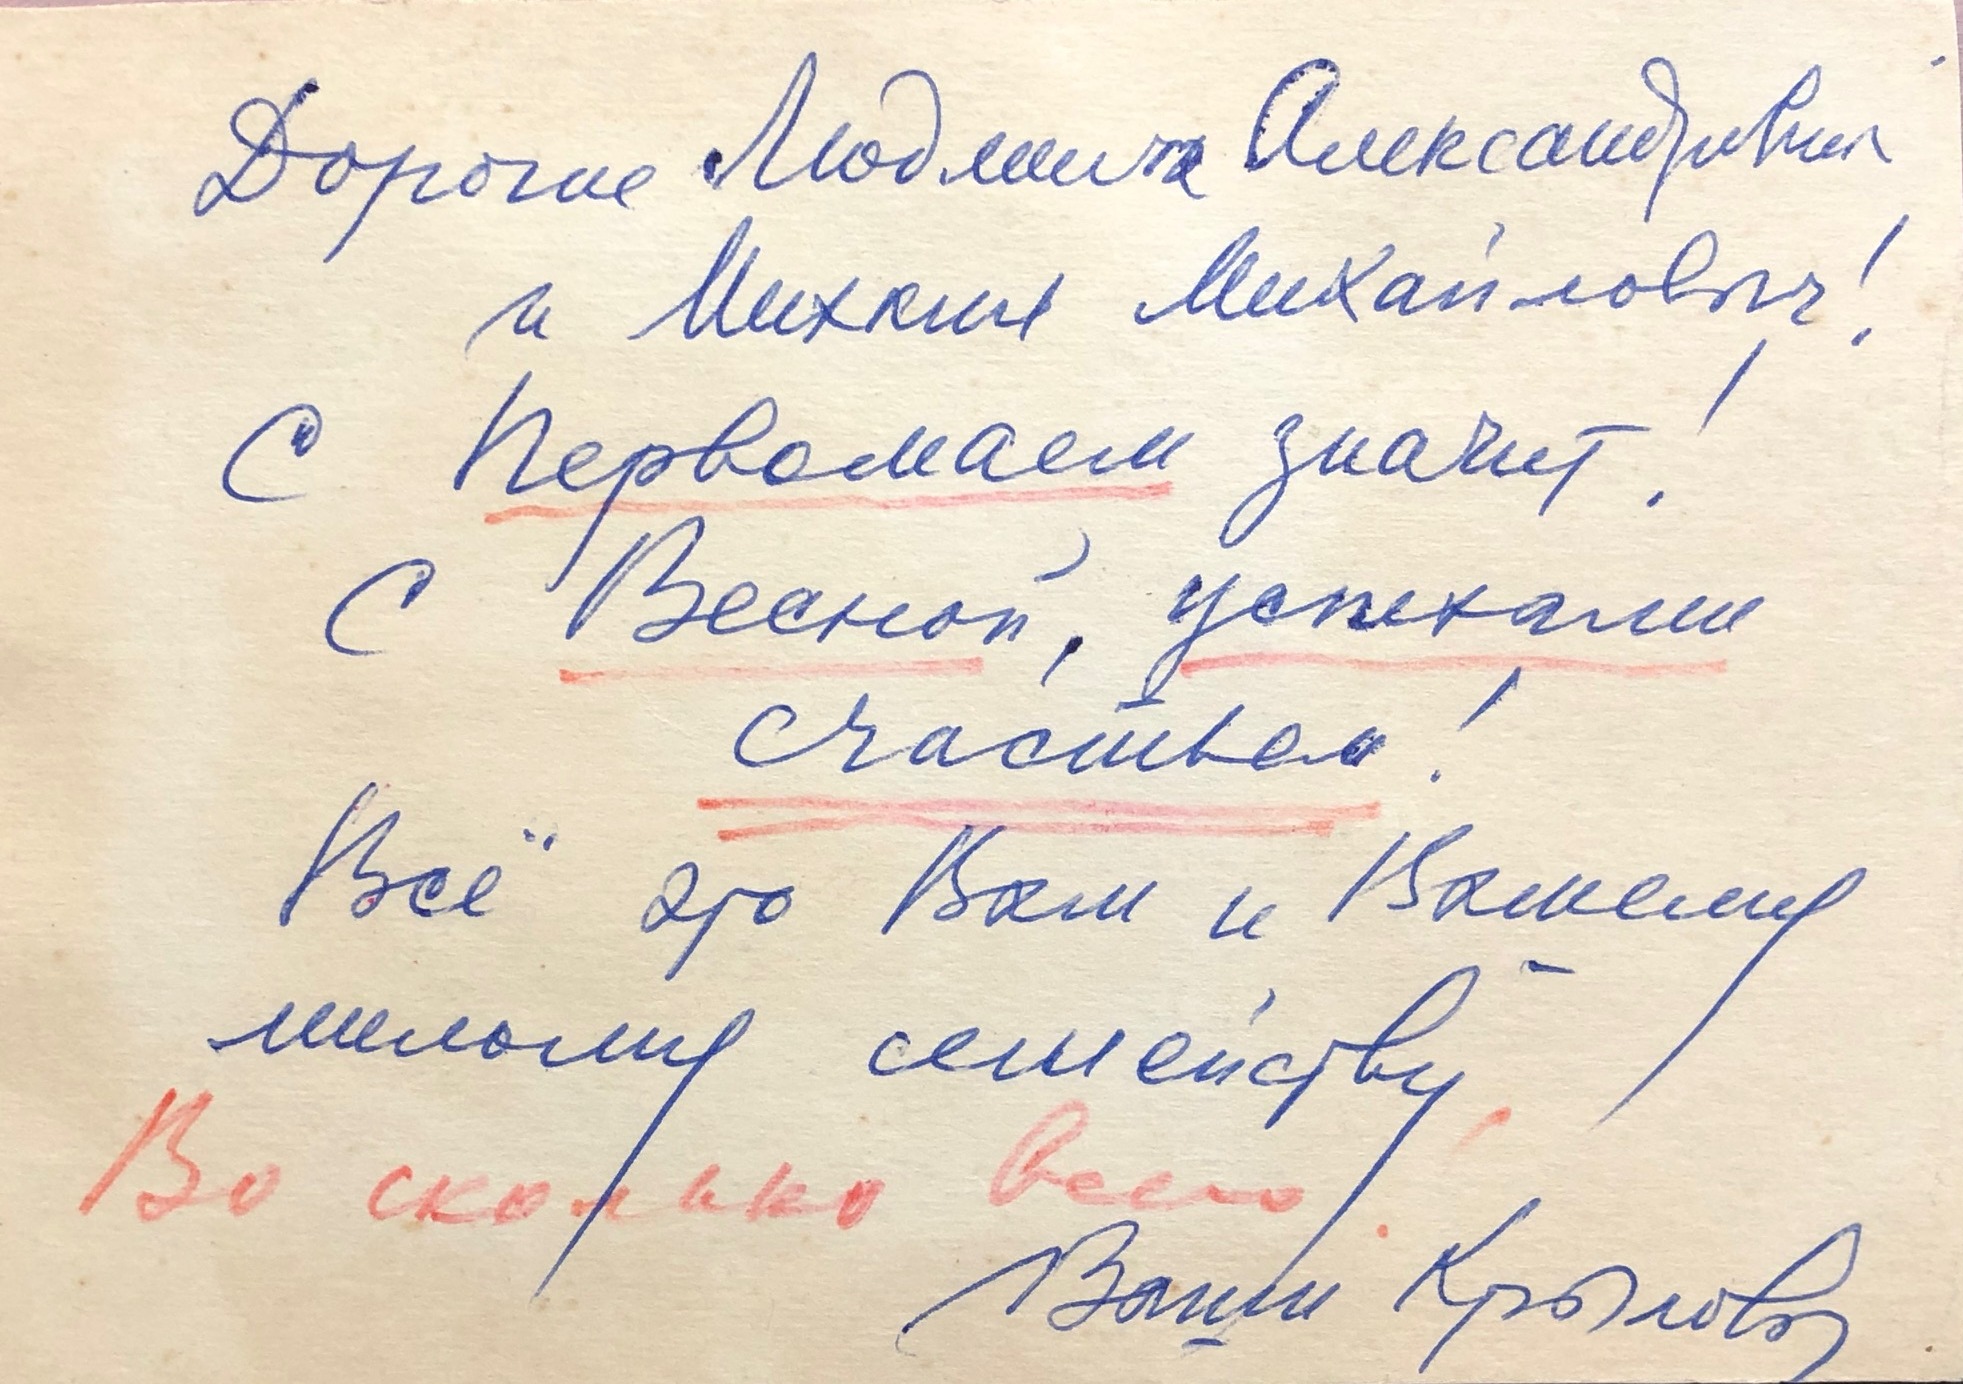 Дорогие Людмила Александровна
и Михаил Михайлович!
С Первомаем значит!
С Весной, успехами
счастьем!
Всё это Вам и Вашему
милому семейству
Во сколько всего!
Ваши Крыловы